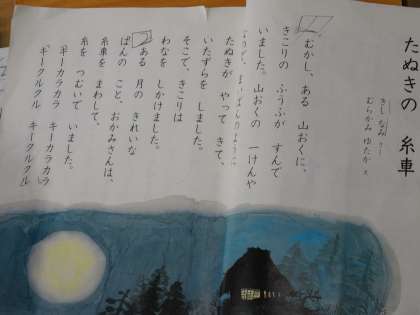 たぬきの 糸車
きし なみ 作
むらかみ ゆたか え
むかし、ある 山おくに、
きこりの ふうふが すんで
いました。山おくの 一けんや
なので、まいばんのように
たぬきが やって きて、
いたずらを しました。
そこで、きこりは
わなを しかけました。
ある 月の きれいな
ばんの こと、おかみさんは、
糸車を まわして、
糸を つむいで いました。
キーカラカラ キーカラカラ
キークルクル キークルクル